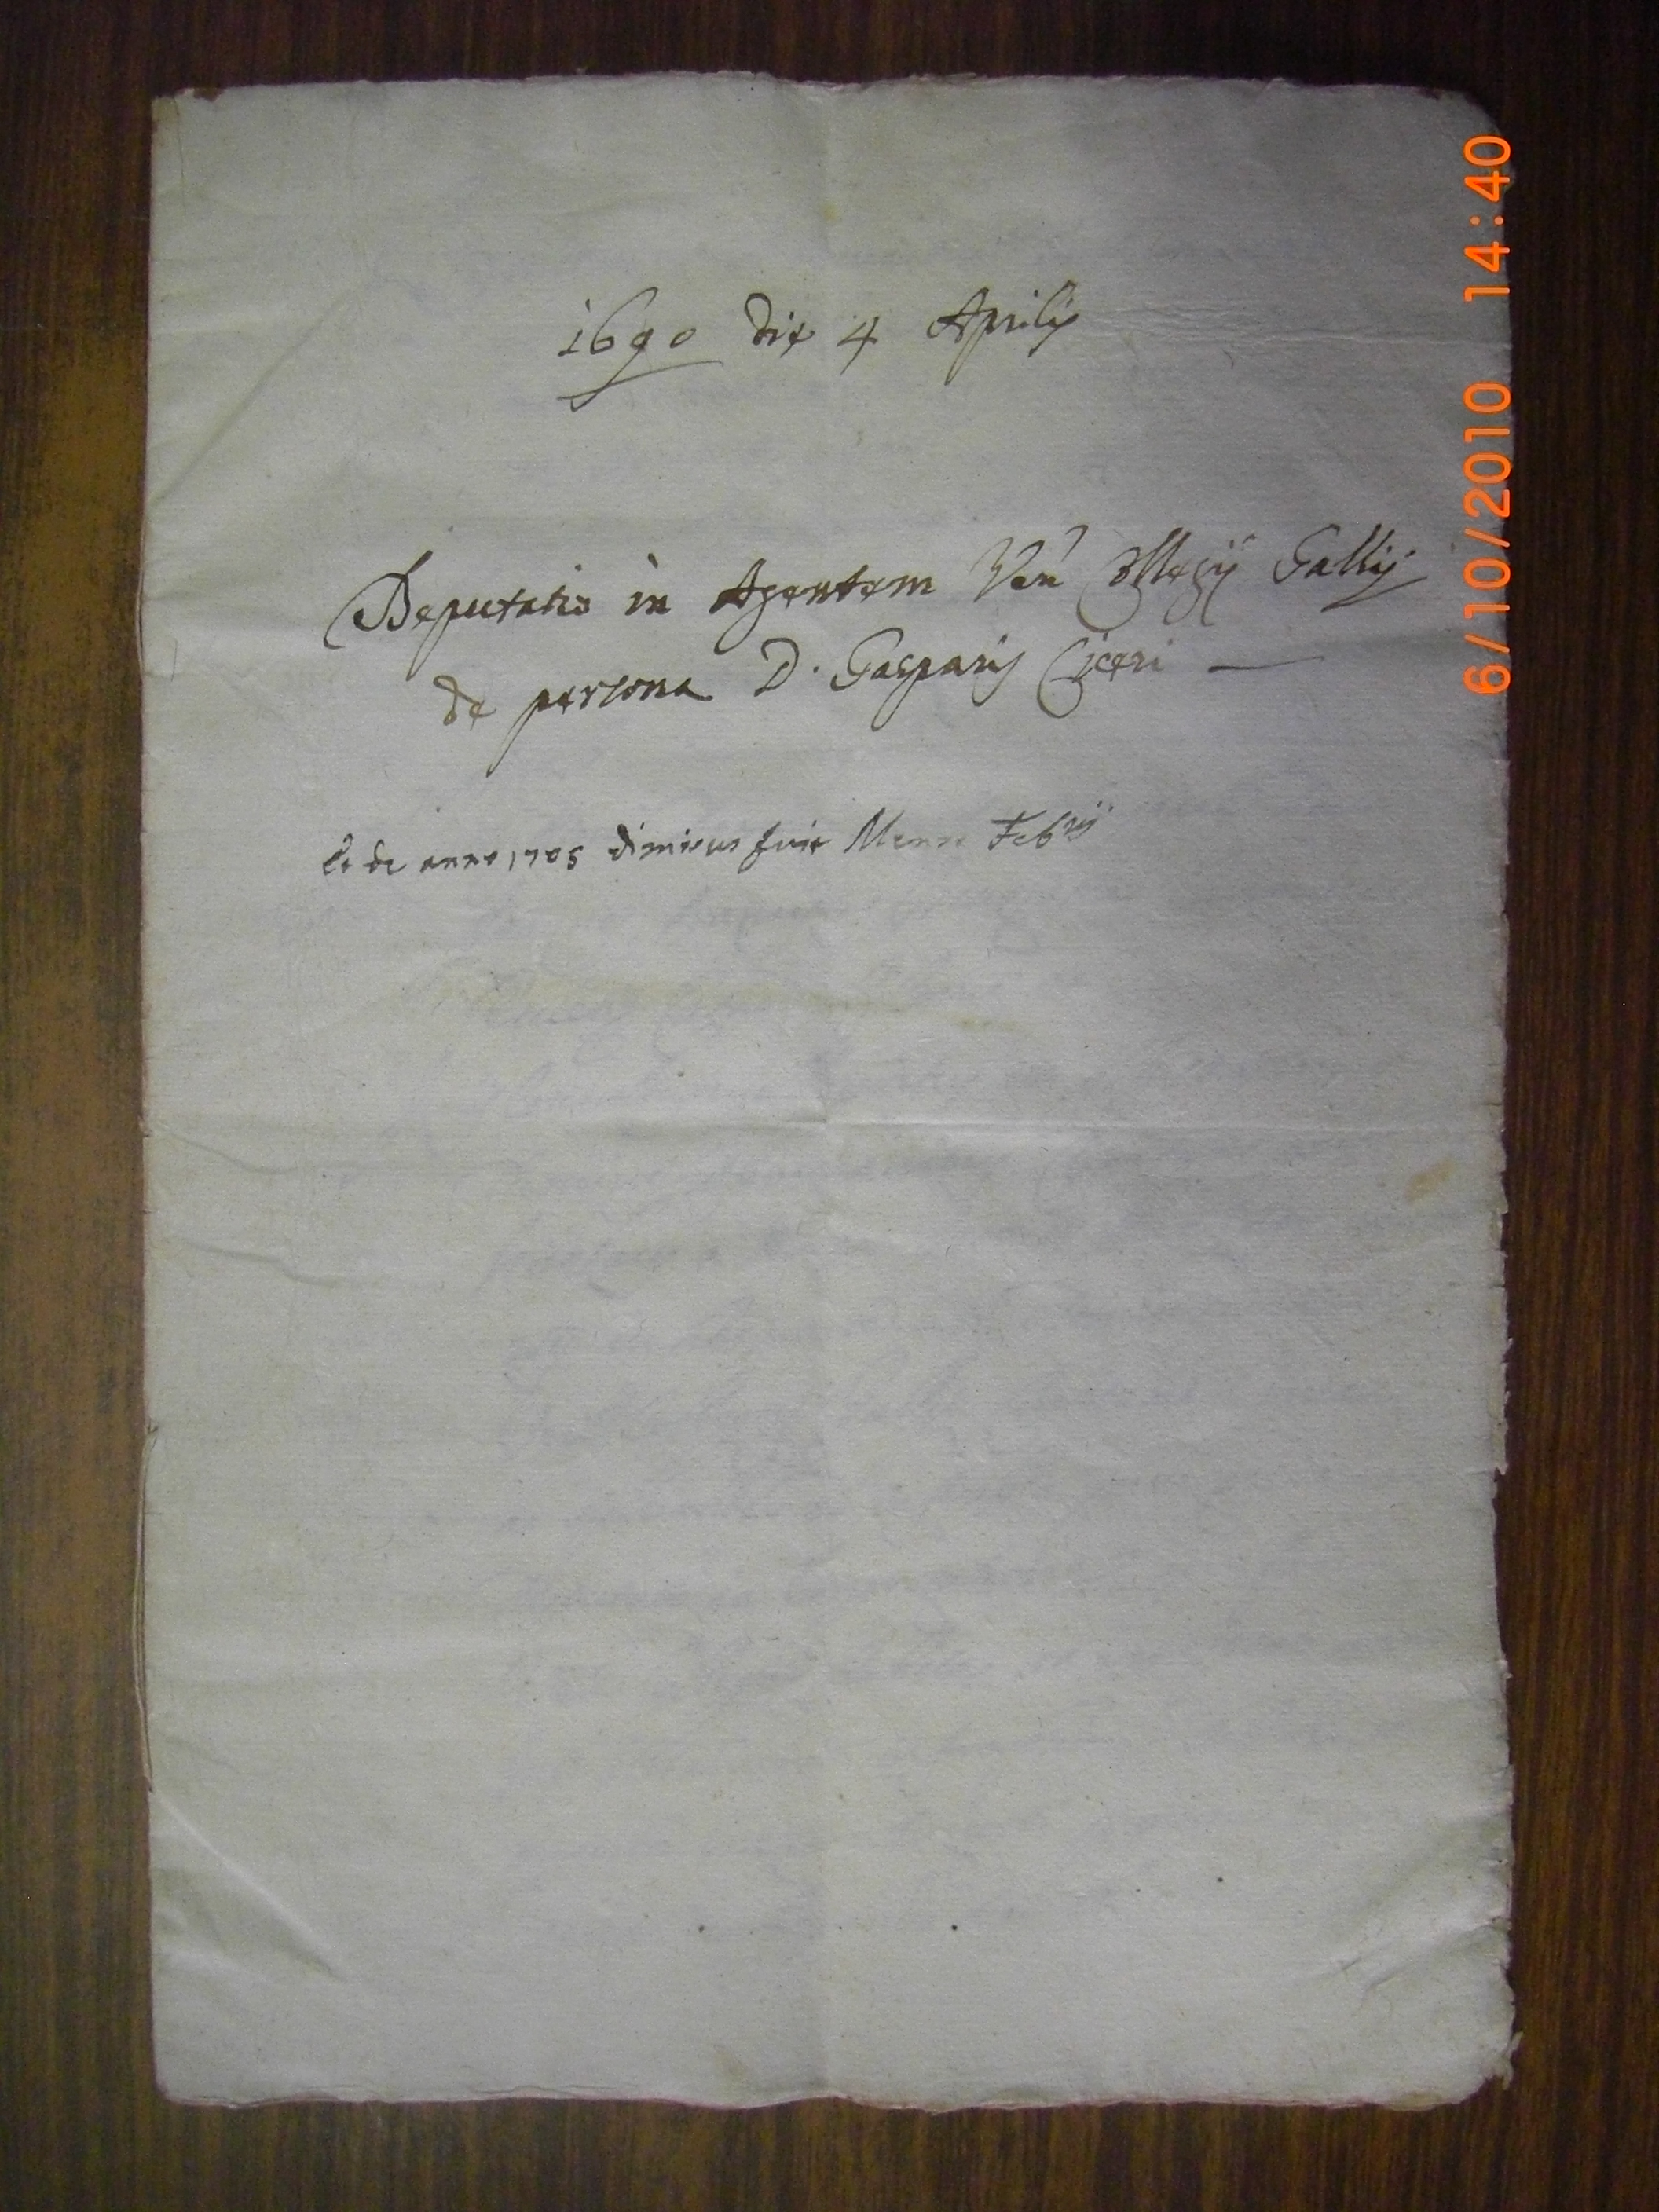 1690 die 4 Aprilis
Deputatio in Agentem Ven Collegij Gallij
de persona D. Gasparis Ciceri
Et de anno 1705 dimissus fuit Mense Feb.rij
6/10/2010 14:40